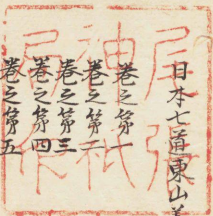 日本七道東山
巻之第一
巻之第二
巻之第三
巻之第四
巻之第五
尾張
神祇